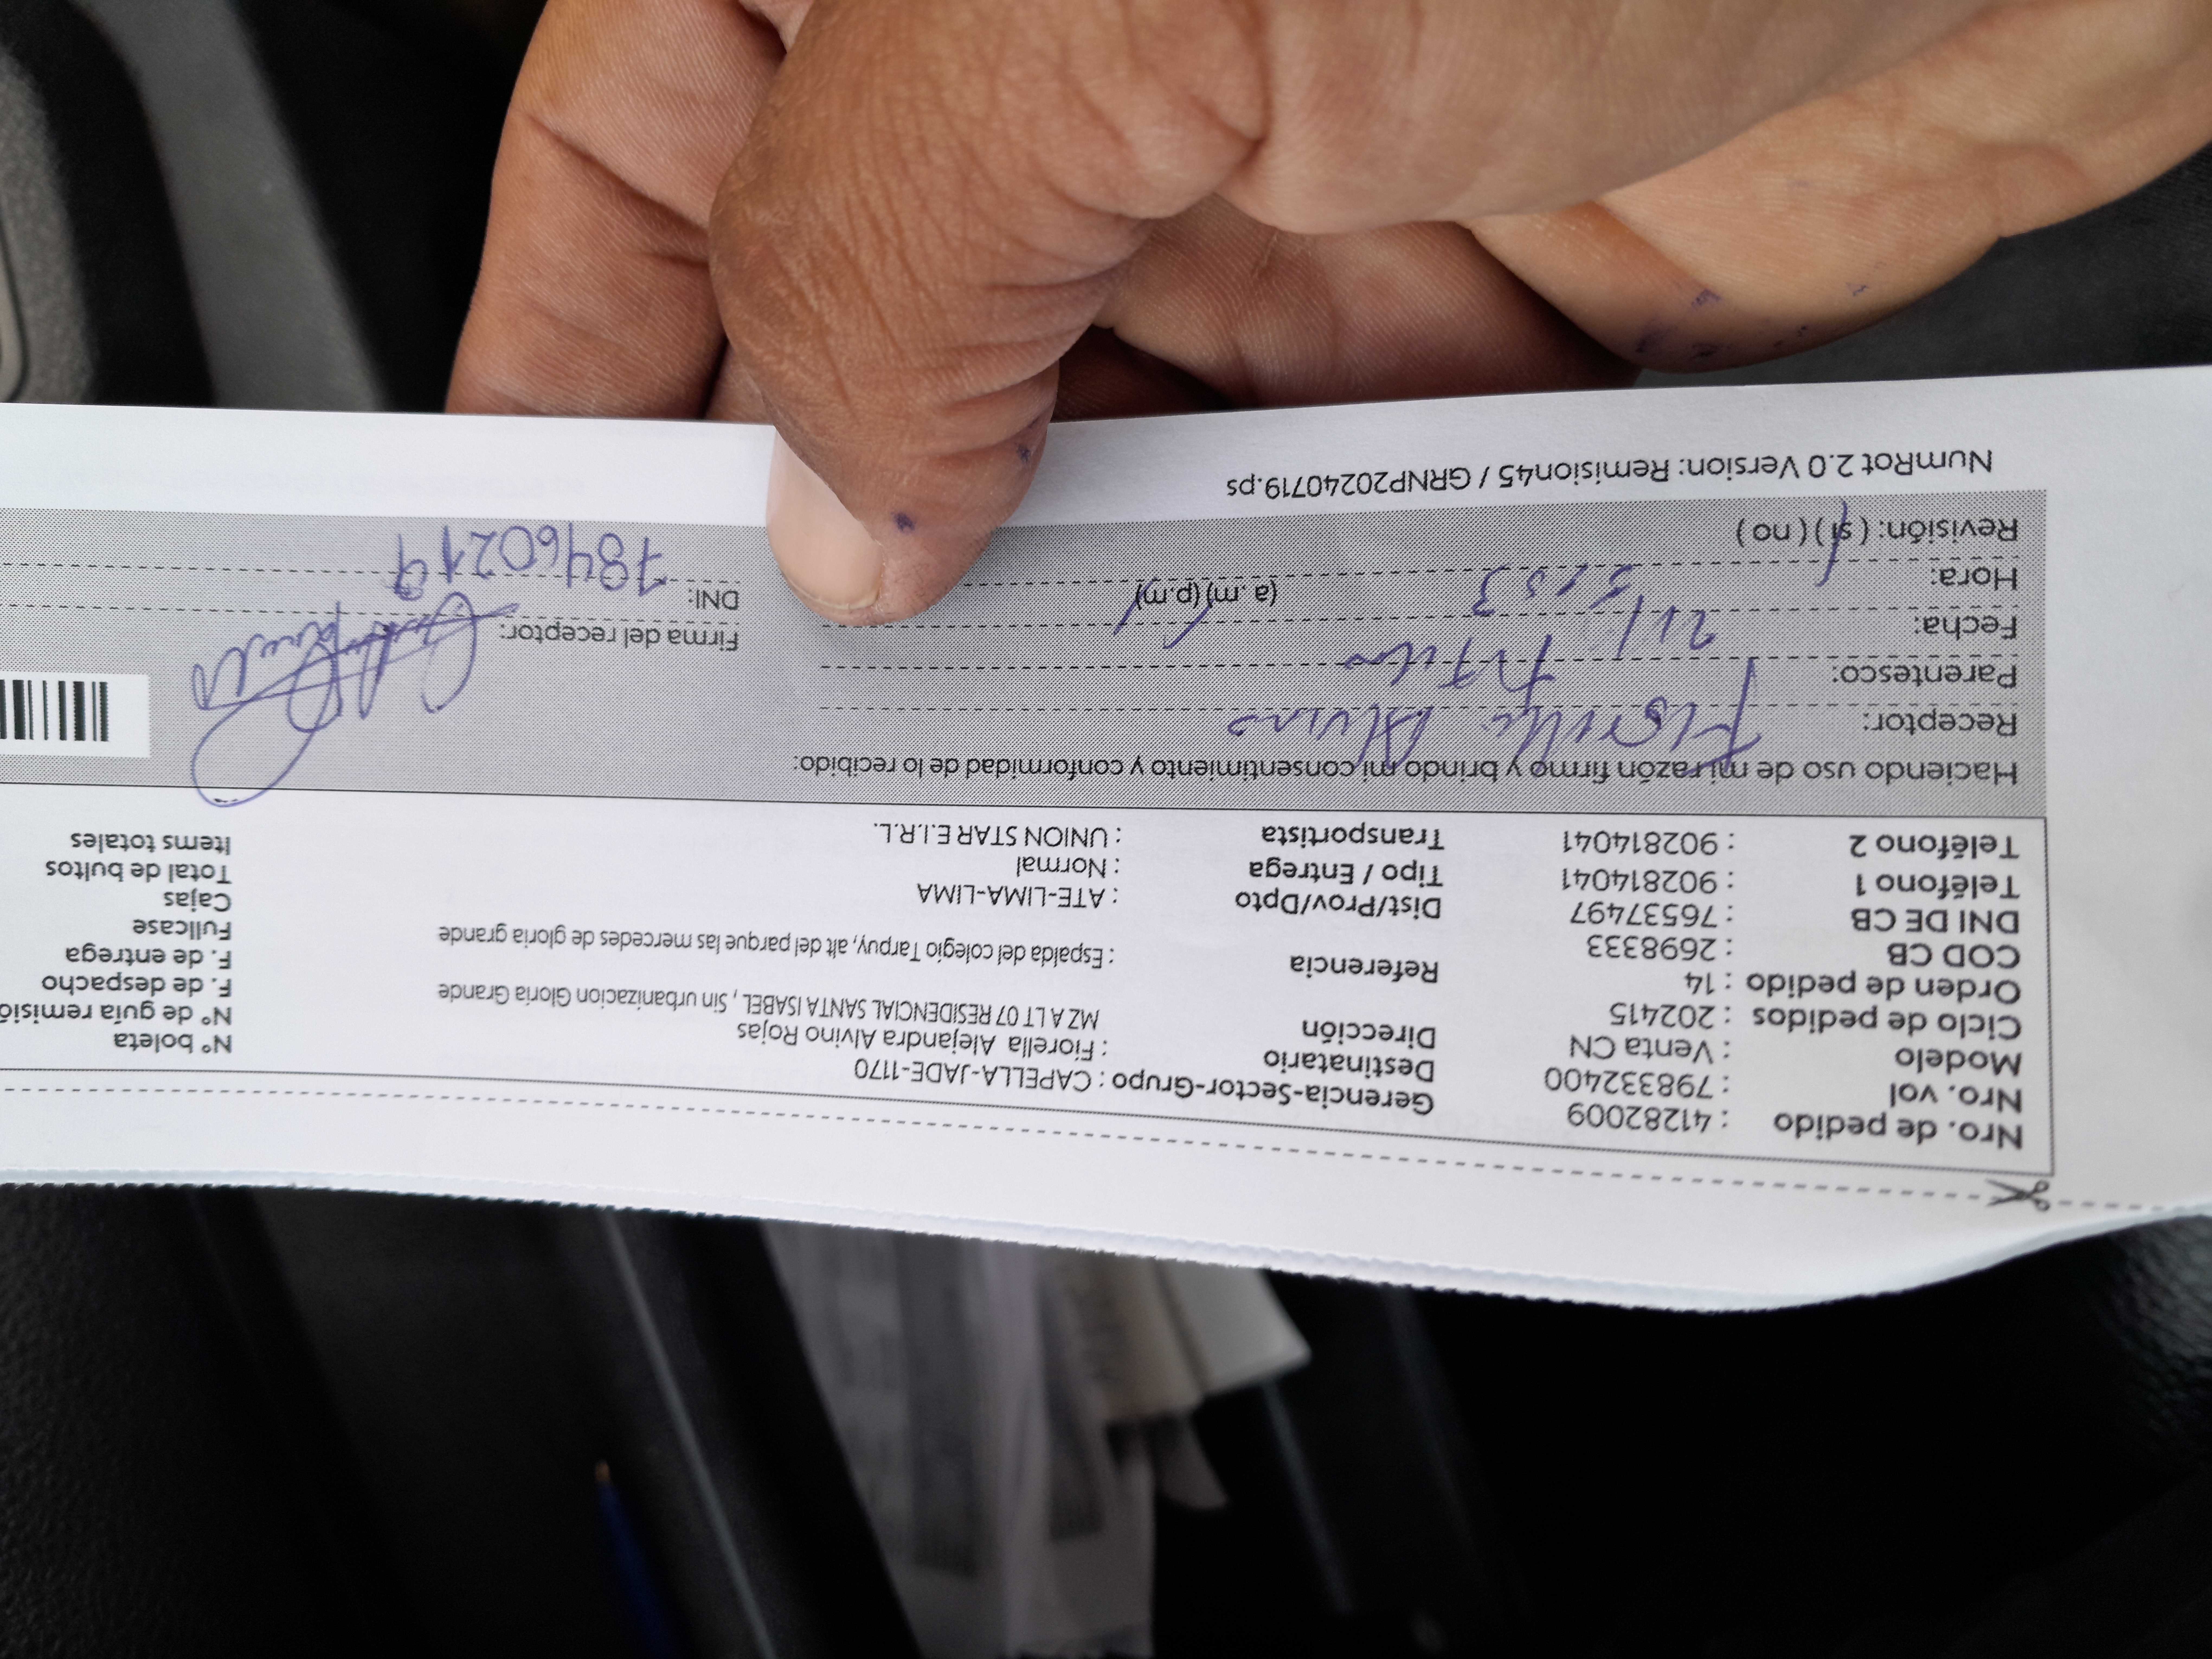 Nro. de pedido : 41282009
Nro. vol : 798332400
Modelo : Venta CN
Ciclo de pedidos : 202415
Orden de pedido : 14
COD CB : 2698333
DNI DE CB : 76537497
Teléfono 1 : 902814041
Teléfono 2 : 902814041
Gerencia-Sector-Grupo : CAPELLA-JADE-1170
Destinatario : Fiorella Alejandra Alvino Rojas
Dirección MZ A LT 07 RESIDENCIAL SANTA ISABEL , Sin urbanizacion Gloria Grande
Referencia : Espalda del colegio Tarpuy, alt del parque las mercedes de gloria grande
Dist/Prov/Dpto : ATE-LIMA-LIMA
Tipo / Entrega : Normal
Transportista : UNION STAR E.I.R.L.
N° boleta
N° de guía remisió
F. de despacho
F. de entrega
Fullcase
Cajas
Total de bultos
Items totales
Haciendo uso de mi razón firmo y brindo mi consentimiento y conformidad de lo recibido:
Receptor: Fiorella Alvino
Parentesco: Titular
Fecha:
Hora: (a. m) (p.m)
Revisión: ( sí ) ( no )
Firma del receptor:
DNI: 78460219
NumRot 2.0 Version: Remision45 / GRNP20240719.ps